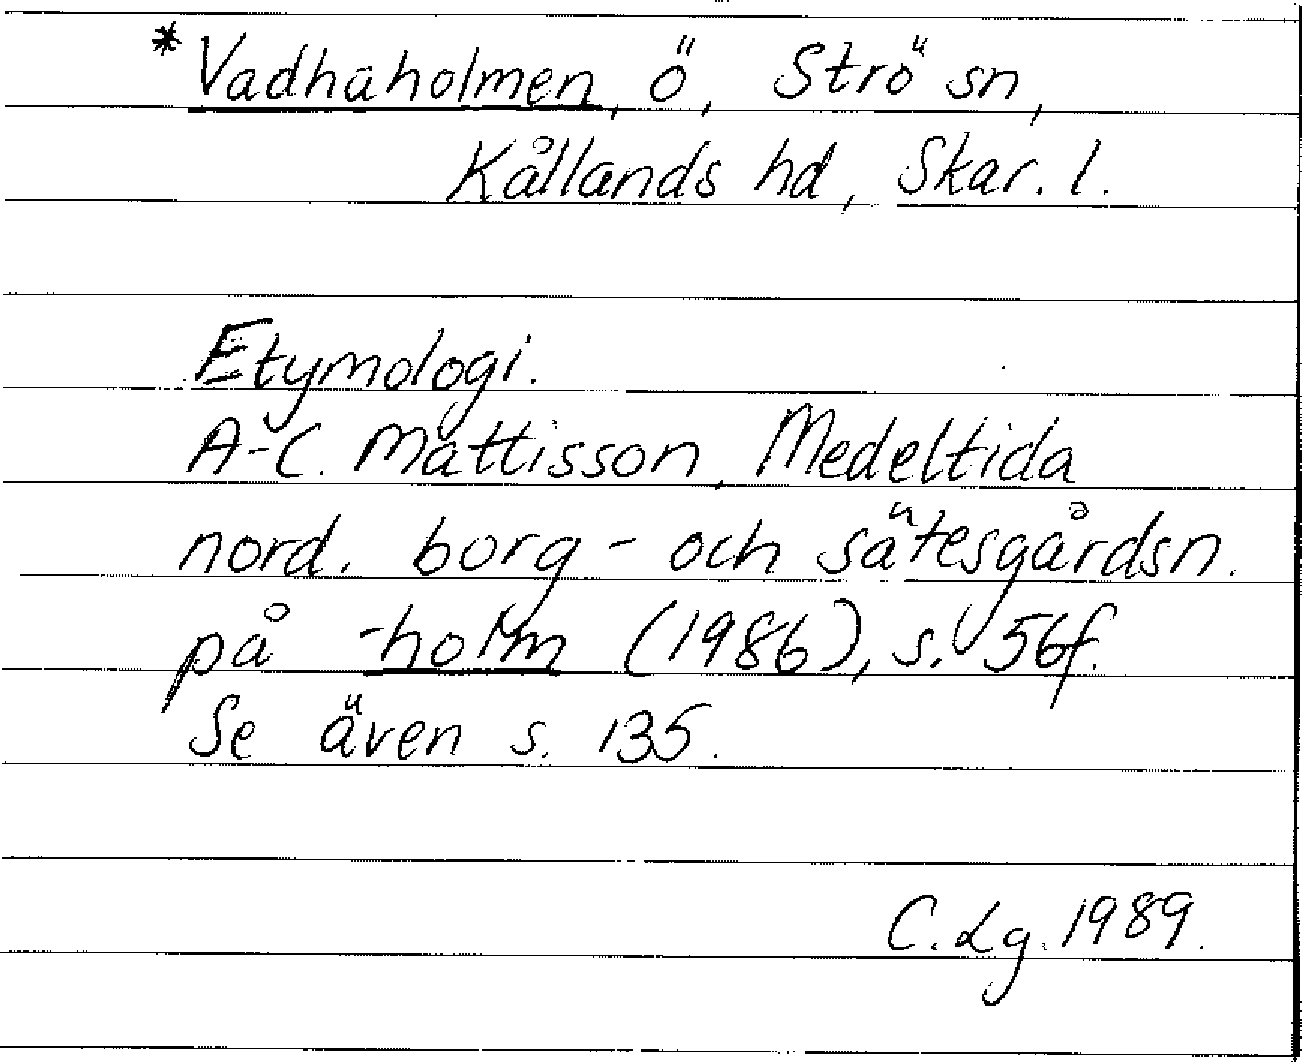 *Vadhaholmen, ö, Strö sn,
Kållands hd, Skar. l.
Etymologi.
A-C. Mattisson, Medeltida
nord. borg- och sätesgårdsn.
på -holm (1986), s. 56f.
Se även s. 135.
C. Lg. 1989.